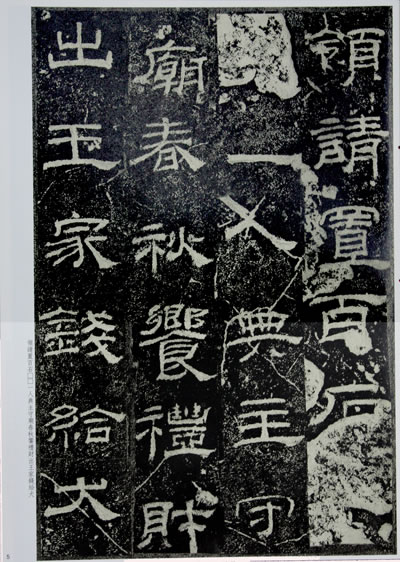 領請置百石
一人典主守
廟春秋饗禮財
出王家錢給大
5